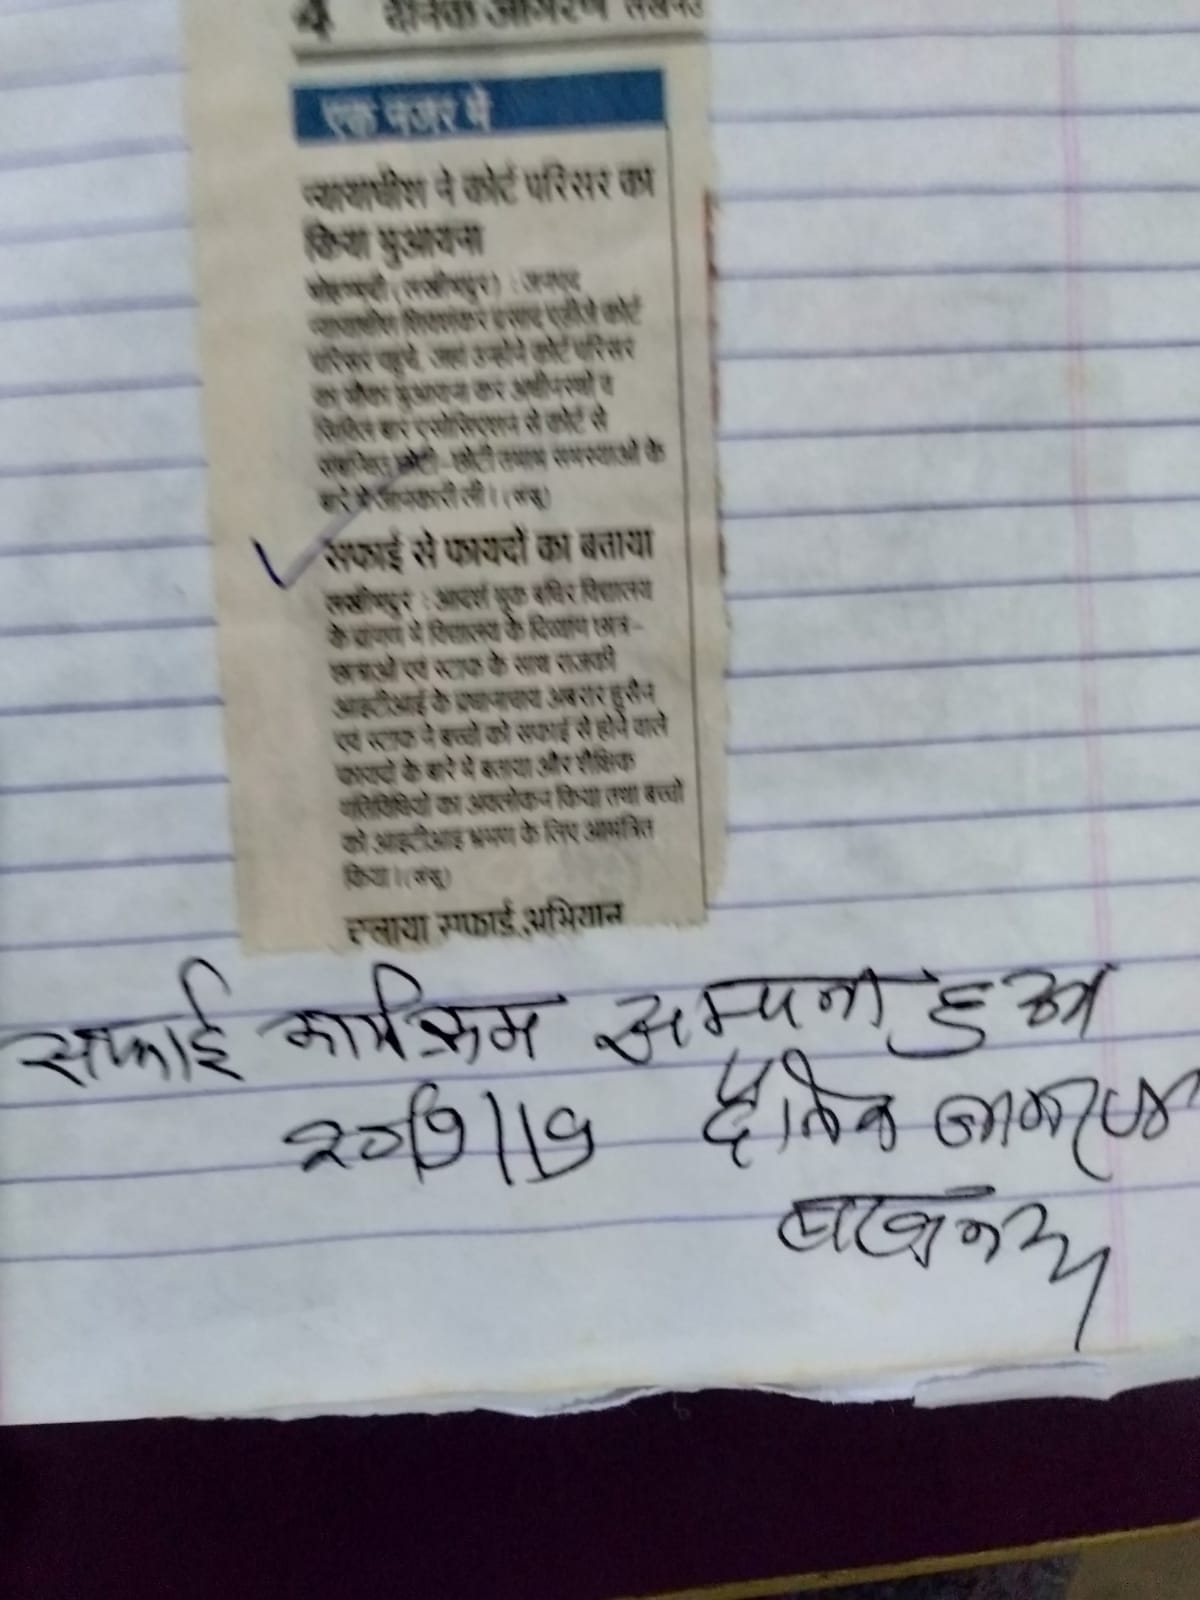 4 दैनिक जागरण लखनऊ
एक नजर में
न्यायाधीश ने कोर्ट परिसर का
किया मुआयना
मोहम्मदी (लखीमपुर) : जनपद
न्यायाधीश शिवशंकर प्रसाद एडीजे कोर्ट
परिसर पहुंचे, जहां उन्होंने कोर्ट परिसर
का मौका मुआयना कर अधीनस्थों व
सिविल बार एसोसिएशन से कोर्ट से
संबन्धित छोटी-छोटी तमाम समस्याओं के
बारे में जानकारी ली। (संसू)
सफाई से फायदों का बताया
लखीमपुर : आदर्श मूक बधिर विद्यालय
के प्रांगण में विद्यालय के दिव्यांग छात्र-
छात्राओं एवं स्टाफ के साथ राजकी
आइटीआई के प्रधानाचार्य अबरार हुसैन
एवं स्टाफ ने बच्चों को सफाई से होने वाले
फायदों के बारे में बताया और शैक्षिक
गतिविधियों का अवलोकन किया तथा बच्चों
को आइटीआइ भ्रमण के लिए आमंत्रित
किया। (संसू)
चलाया सफाई अभियान
सफाई कार्यक्रम सम्पन्न हुआ
दैनिक जागरण
लखनऊ